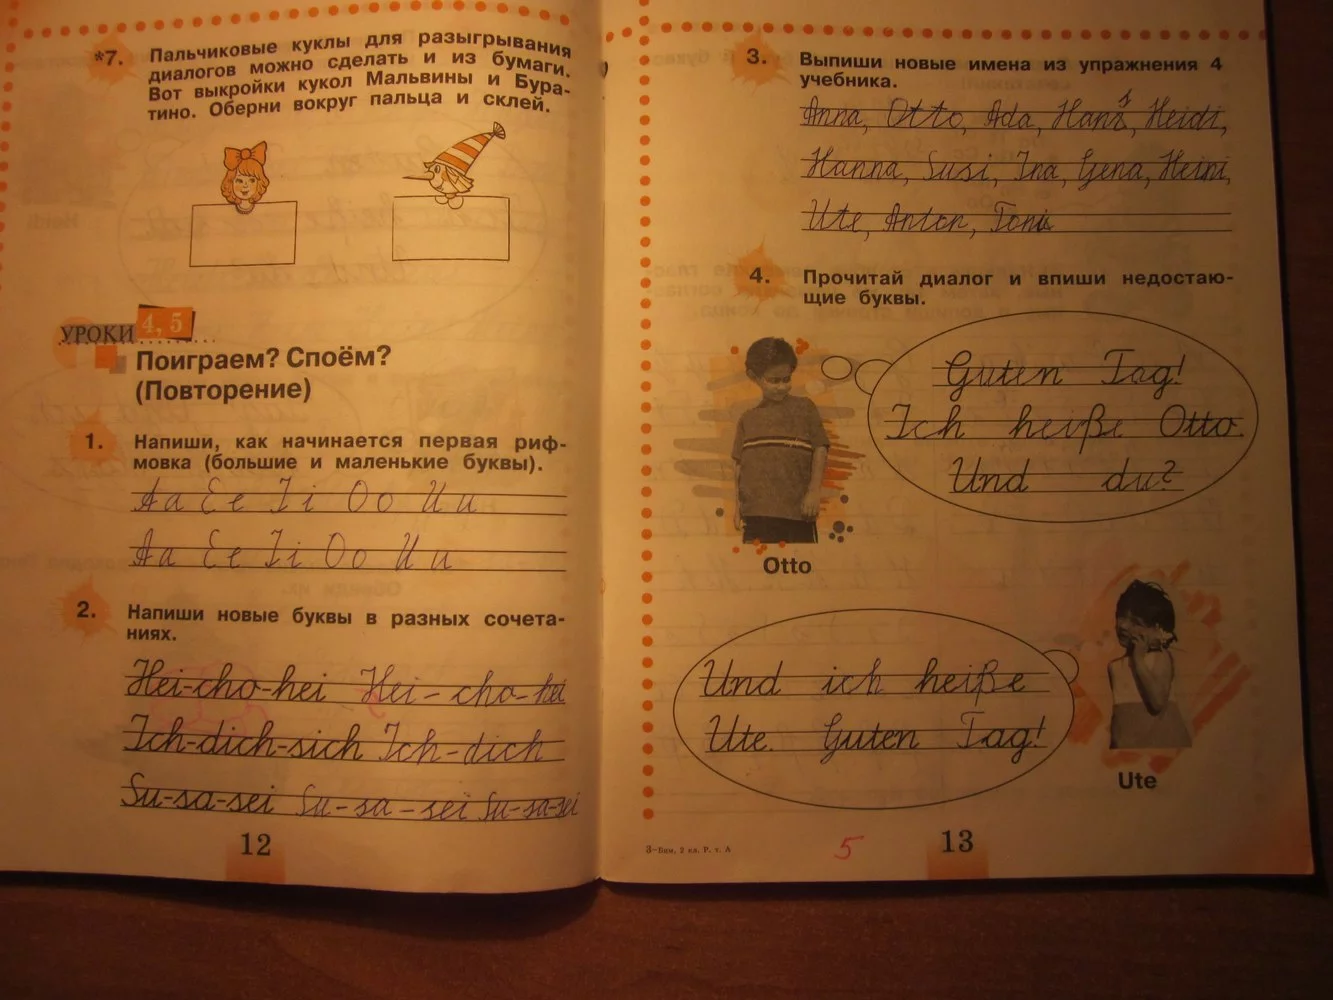 *7. Пальчиковые куклы для разыгрывания
диалогов можно сделать и из бумаги.
Вот выкройки кукол Мальвины и Бура-
тино. Оберни вокруг пальца и склей.
УРОКИ 4, 5
Поиграем? Споём?
(Повторение)
1. Напиши, как начинается первая риф-
мовка (большие и маленькие буквы).
Aa Ee Ii Oo Uu
Aa Ee Ii Oo Uu
2. Напиши новые буквы в разных сочета-
ниях.
Hei-cho-hei Hei-cho-hei
Ich-dich-sich Ich-dich
Su-sa-sei Su-sa-sei Su-sa-sei
12
3. Выпиши новые имена из упражнения 4
учебника.
Anna, Otto, Ada, Hans, Heidi,
Hanna, Susi, Ina, Gena, Heini,
Ute, Anton, Toni
4. Прочитай диалог и впиши недостаю-
щие буквы.
Guten Tag!
Ich heiße Otto.
Und du?
Otto
Und ich heiße
Ute. Guten Tag!
Ute
3-Бим, 2 кл. Р. т. А
5
13